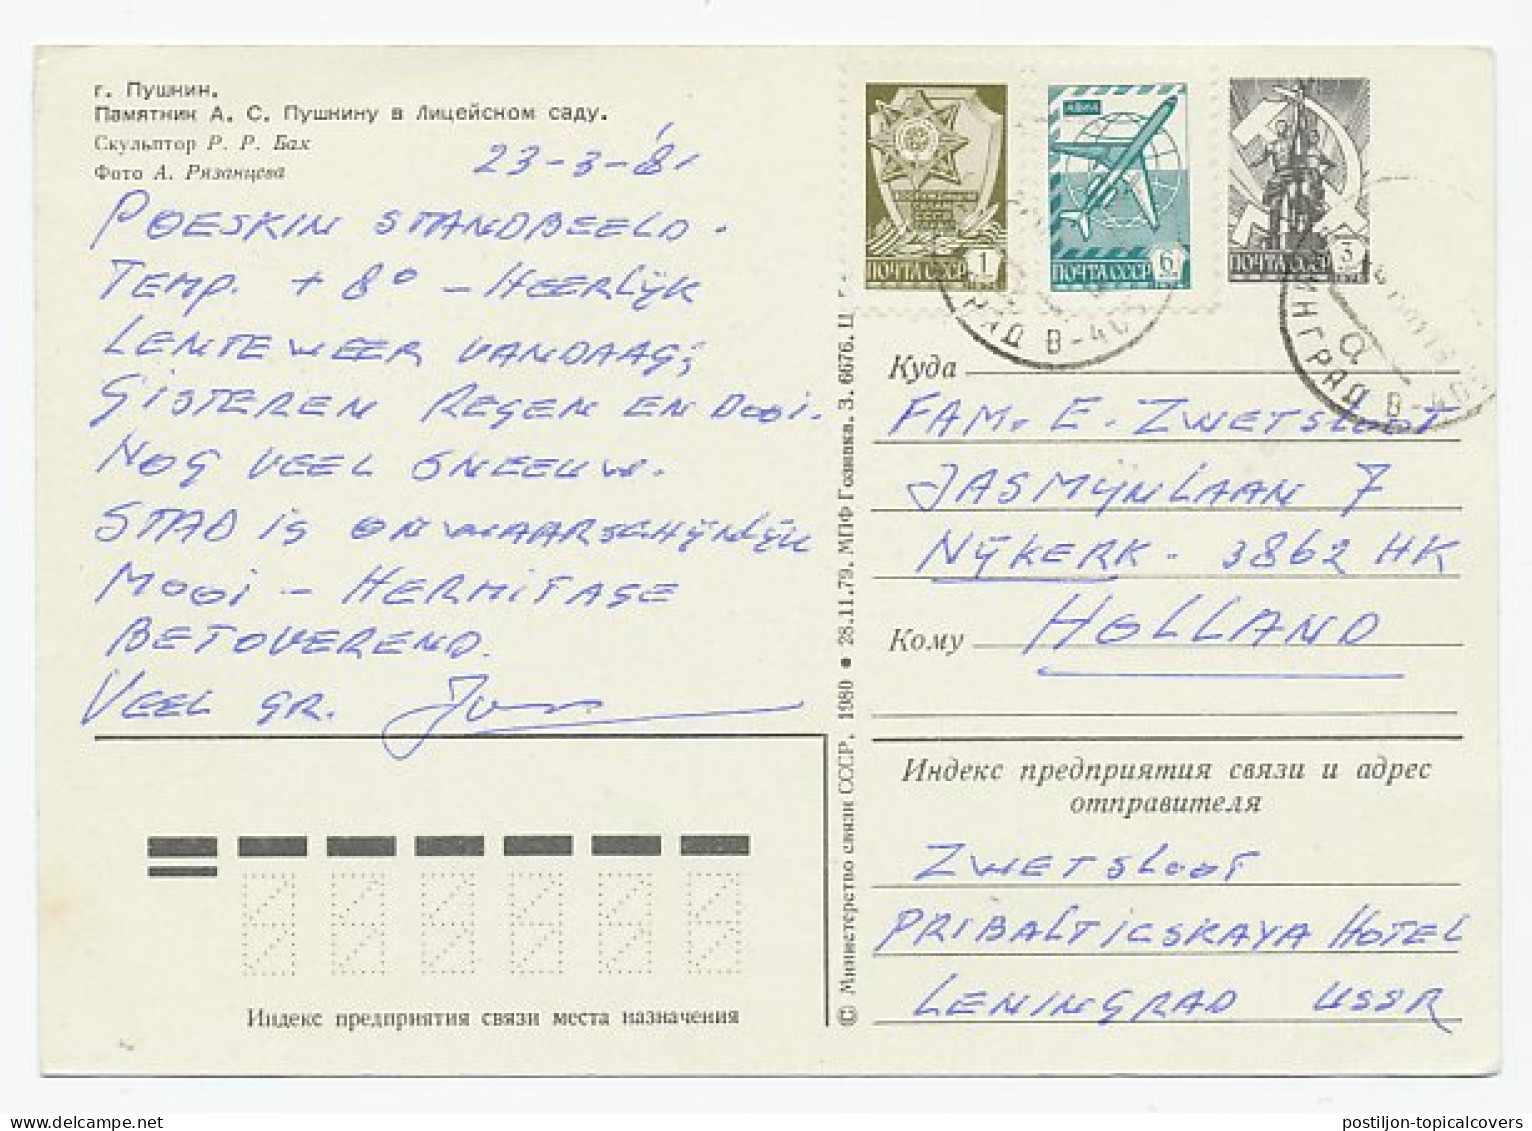 г. Пушкин.
Памятник А. С. Пушкину в Лицейском саду.
Скульптор Р. Р. Бах
Фото А. Рязанцева
23-3-81
POESKIN STANDBEELD.
TEMP. + 8° - HEERLIJK
LENTEWEER VANDAAG;
GISTEREN REGEN EN DOOI.
NOG VEEL SNEEUW.
STAD IS ONWAARSCHIJNLIJK
MOOI - HERMITAGE
BETOVEREND.
VEEL GR.
Индекс предприятия связи места назначения
© Министерство связи СССР. 1980 ● 28.11.79. МПФ Гознака. З. 6676. Ц.
ПОЧТА СССР 1
АВИА
ПОЧТА СССР 6
ПОЧТА СССР 3
РАД В-40
ИНГРАД В-40
а
Куда
FAM. E. ZWETSLOOT
JASMIJNLAAN 7
NIJKERK - 3862 HK
Кому
HOLLAND
Индекс предприятия связи и адрес
отправителя
ZWETSLOOT
PRIBALTICSKAYA HOTEL
LENINGRAD USSR
postiljon-topicalcovers